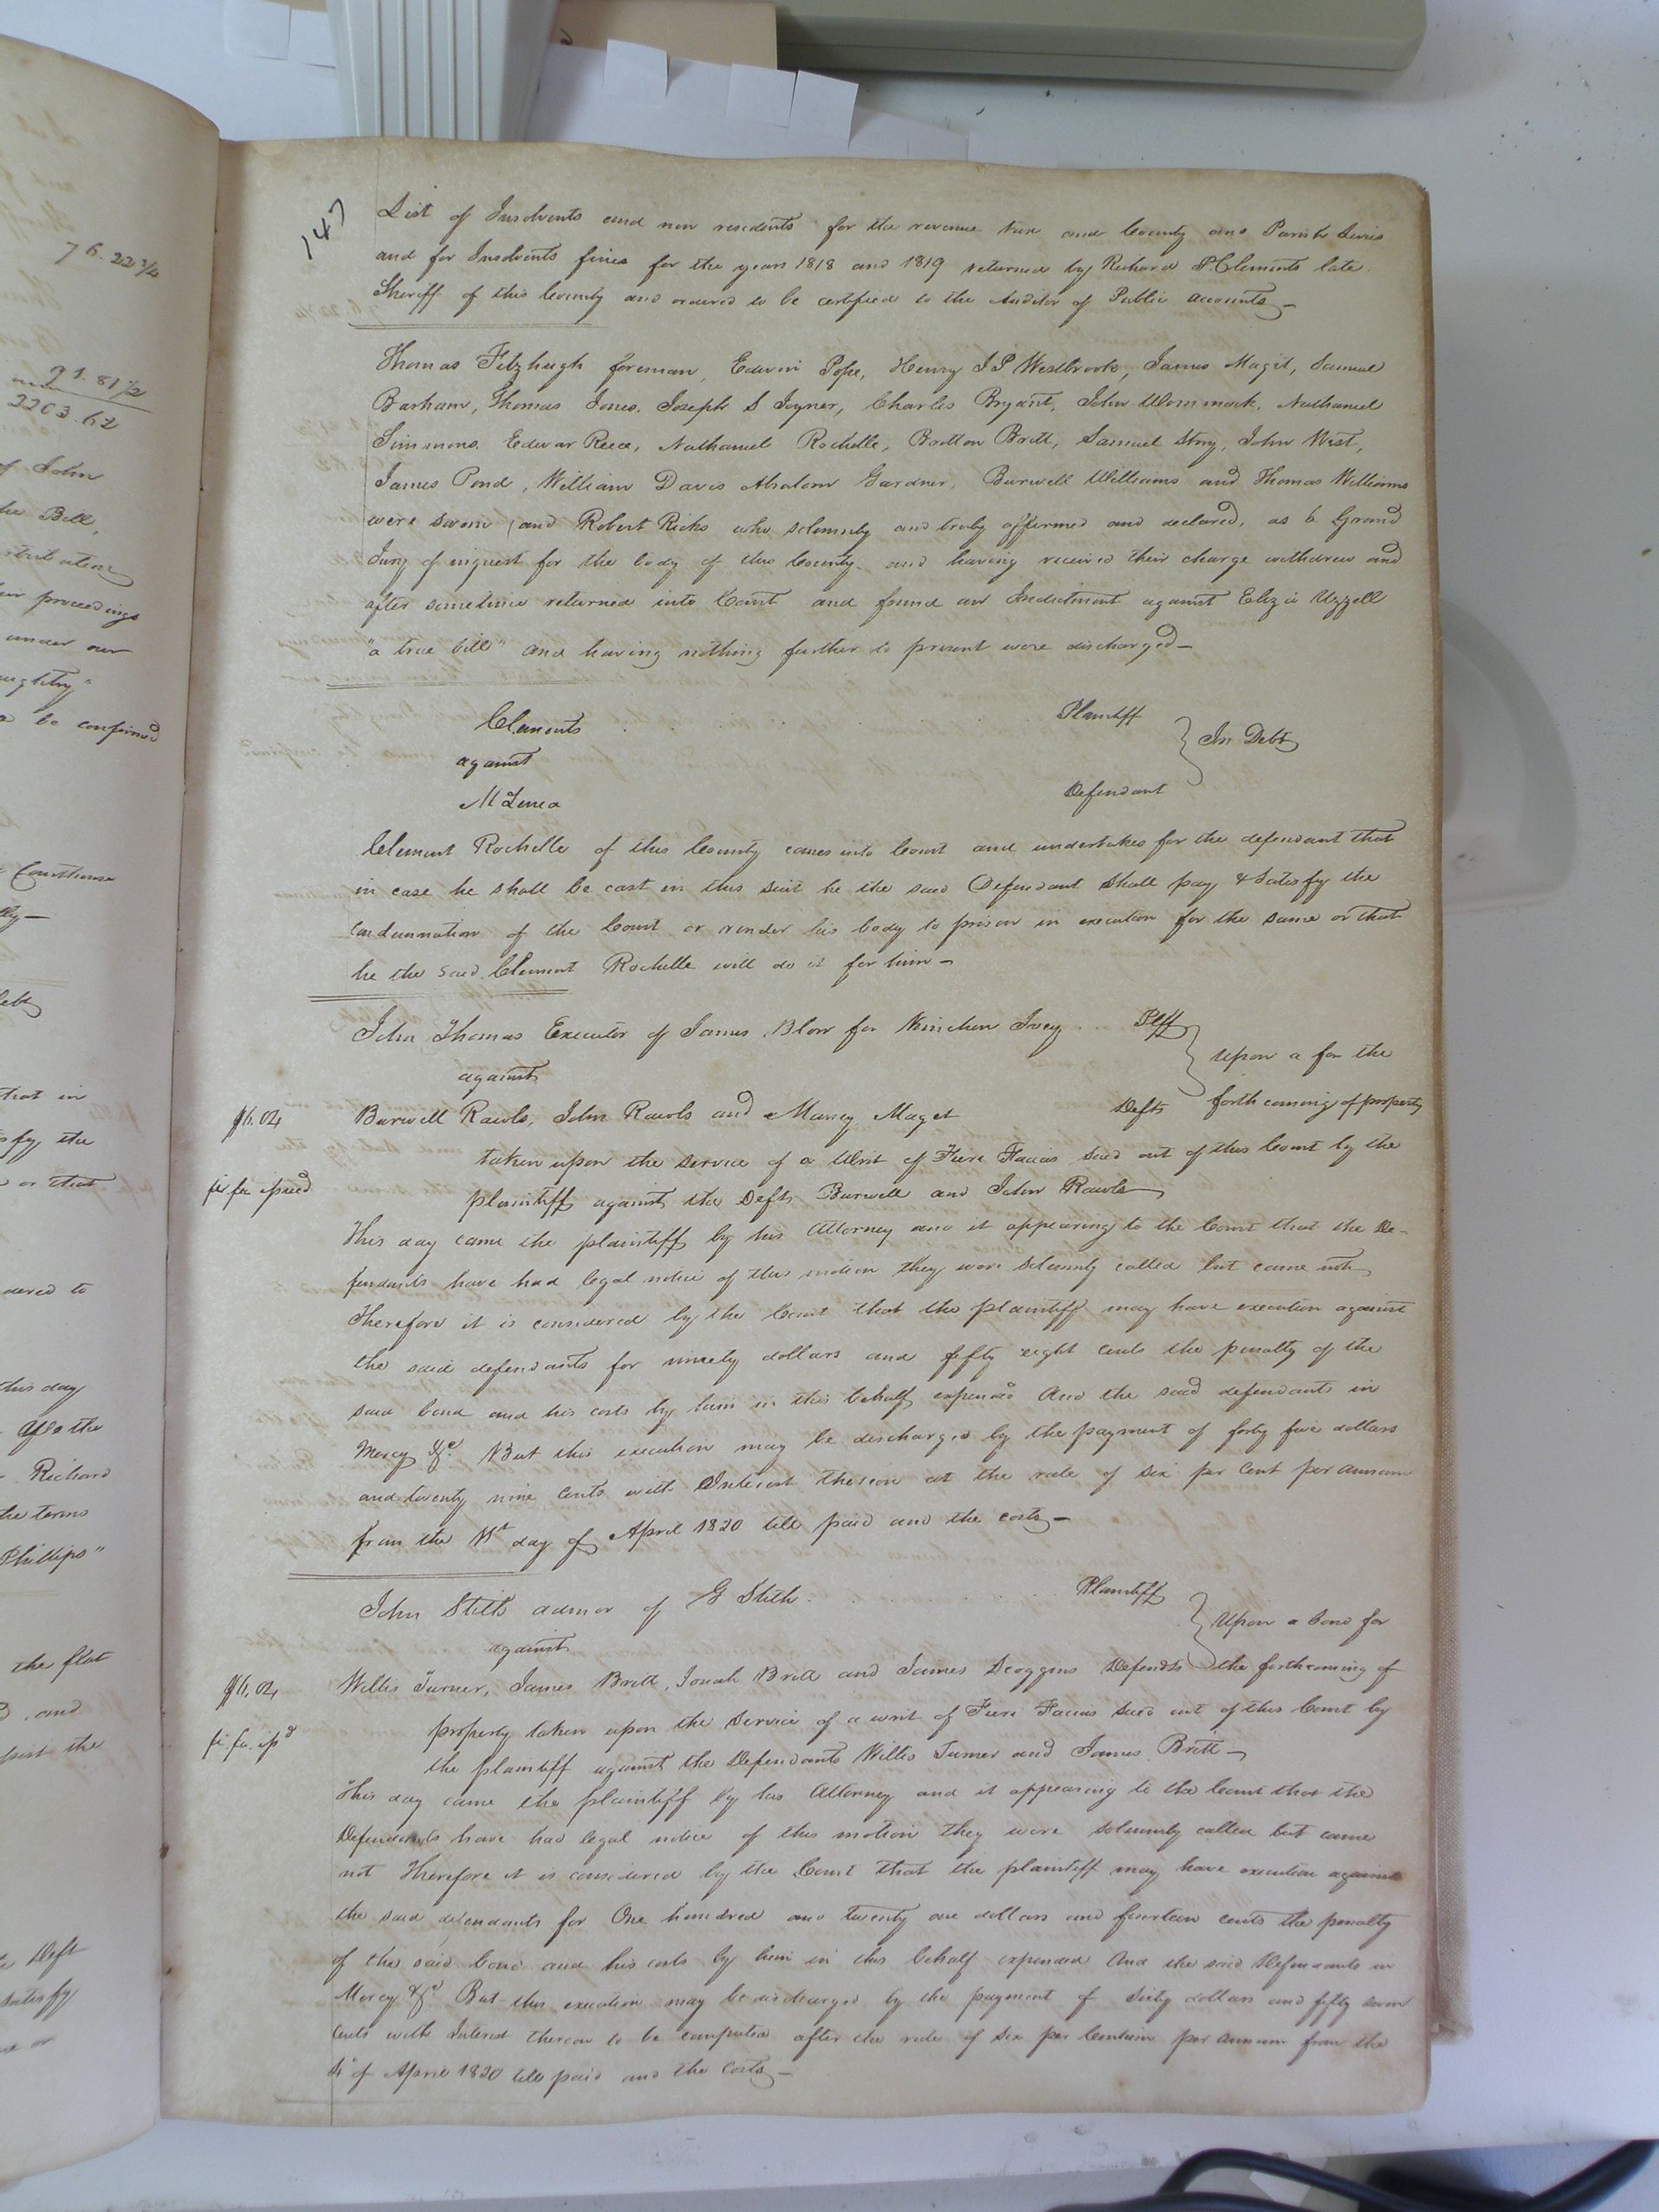 76.22 3/4
91.81 1/2
2203.62
of John
the Bill,
proceedings
under our
be confirmed
Courthouse
that in
the
or that
ordered to
this day
Richard
the terms
Phillips"
the flat
and
the
Deft
satisfy
or
147
List of Insolvents and non residents for the revenue tax and County and Parish Levies
and for Insolvents fines for the years 1818 and 1819 returned by Richard P Clements late
Sheriff of this County and ordered to be certified to the Auditor of Public accounts —
Thomas Fitzhugh foreman, Edwin Pope, Henry J P Westbrook, James Magit, Samuel
Barham, Thomas Jones, Joseph S Joyner, Charles Bryant, John Wommack, Nathaniel
Simmons, Edwar Reece, Nathaniel Rochelle, Britton Britt, Samuel Story, John West,
James Pond, William Davis Absalom Gardner, Burwell Williams and Thomas Williams
were sworn, and Robert Ricks who solemnly and truly affirmed and declared, as a Grand
Jury of inquest for the body of this County and having received their charge withdrew and
after sometime returned into Court and found an Indictment against Uzzell
"a true bill" and having nothing further to present were discharged —
Clements . . . . Plaintiff
against } In Debt
Defendant
Clement Rochelle of this County comes into Court and undertakes for the defendant that
in case he shall be cast in this suit he the said Defendant shall pay & Satisfy the
Condemnation of the Court or render his body to prison in execution for the same or that
he the said Clement Rochelle will do it for him —
John Thomas Executor of James Blow for Kinchen Ivey . . Plff
against } Upon a for the
Burwell Rawls, John Rawls and Maget Defts forthcoming of property
fi. fa. issued
taken upon the service of a Writ of Fieri Facias sued out of this Court by the
plaintiff against the Defts Burwell and John Rawls —
This day came the plaintiff by his Attorney and it appearing to the Court that the De-
fendants have had legal notice of this motion they were solemnly called but came not
Therefore it is considered by the Court that the plaintiff may have execution against
the said defendants for ninety dollars and fifty eight cents the penalty of the
said bond and his costs by him in this behalf expended And the said defendants in
Mercy &c. But this execution may be discharged by the payment of forty five dollars
and twenty nine Cents with Interest thereon at the rate of six per Cent per annum
from the 1st day of April 1820 till paid and the costs —
John Stith admor of G Stith . . . . Plaintiff
against } Upon a bond for
Willis Turner, James Britt, Josiah Britt and James Scoggins Defendts the forthcoming of
fi. fa. issd
property taken upon the service of a writ of Fieri Facias sued out of this Court by
the plaintiff against the Defendants Willis Turner and James Britt —
This day came the plaintiff by his Attorney and it appearing to the Court that the
Defendants have had legal notice of this motion they were solemnly called but came
not Therefore it is considered by the Court that the plaintiff may have execution against
the said defendants for One hundred and twenty one dollars and fourteen cents the penalty
of the said bond and his costs by him in this behalf expended And the said Defendants in
Mercy &c But this execution may be discharged by the payment of Sixty dollars and fifty seven
Cents with Interest thereon to be computed after the rate of six per Centum per annum from the
4th of April 1820 till paid and the Costs —